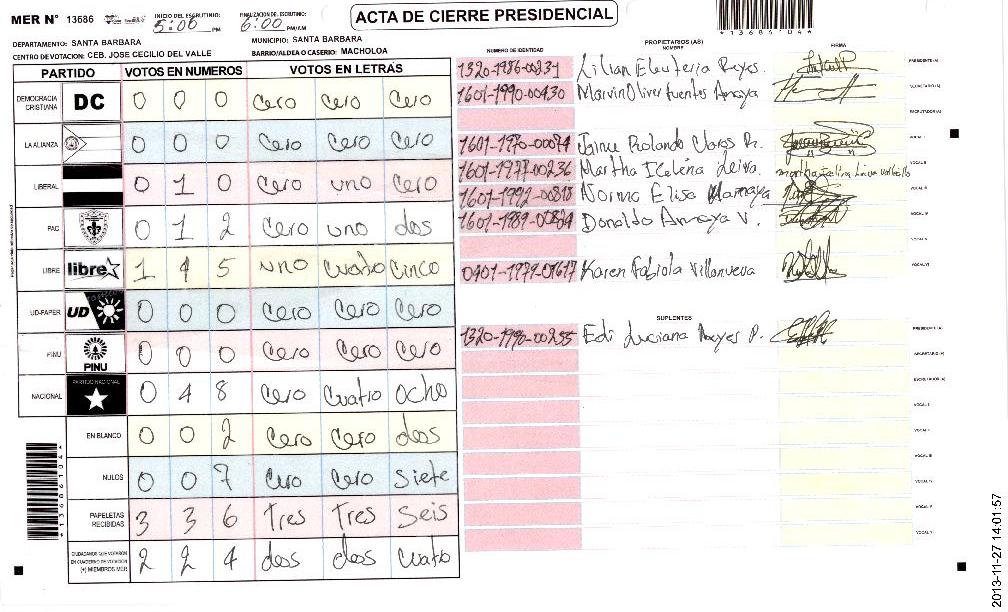 MER N° 13686 INICIO DEL ESCRUTINIO: 5:00 PM FINALIZACION DEL ESCRUTINIO: 6:00 PM/AM ACTA DE CIERRE PRESIDENCIAL
DEPARTAMENTO: SANTA BARBARA MUNICIPIO: SANTA BARBARA
CENTRO DE VOTACION: CEB. JOSE CECILIO DEL VALLE BARRIO/ALDEA O CASERIO: MACHOLOA
*13686104*
PARTIDO VOTOS EN NUMEROS VOTOS EN LETRAS
DEMOCRACIA CRISTIANA DC 0 0 0 cero cero cero
LA ALIANZA 0 0 0 cero cero cero
LIBERAL 0 1 0 cero uno cero
PAC 0 1 2 cero uno dos
LIBRE libre 1 4 5 uno cuatro cinco
UD-FAPER UD 0 0 0 cero cero cero
PINU PINU 0 0 0 cero cero cero
NACIONAL PARTIDO NACIONAL 0 4 8 cero cuatro ocho
EN BLANCO 0 0 2 cero cero dos
NULOS 0 0 7 cero cero siete
PAPELETAS RECIBIDAS 3 3 6 tres tres seis
CIUDADANOS QUE VOTARON EN CUADERNO DE VOTACION (+) MIEMBROS MER 2 2 4 dos dos cuatro
*13686104*
NUMERO DE IDENTIDAD PROPIETARIOS (AS) NOMBRE FIRMA
1320-1986-00231 Lilian Eleuteria Reyes. PRESIDENTE(A)
1601-1990-00430 Marvin Oliver Fuentes Amaya SECRETARIO(A)
ESCRUTADOR(A)
1601-1970-00074 Jaime Rolando Claros R. VOCAL I
1601-1977-00236 Martha Icelena Leiva. VOCAL II
Norma Elisa VOCAL III
Donaldo Amaya V. VOCAL IV
VOCAL V
Karen Fabiola Villanueva VOCAL VI
SUPLENTES
1320-1990-00255 Edi Luciana Reyes P. PRESIDENTE(A)
SECRETARIO(A)
ESCRUTADOR(A)
VOCAL I
VOCAL II
VOCAL III
VOCAL IV
VOCAL V
VOCAL VI
2013-11-27 14:01:57